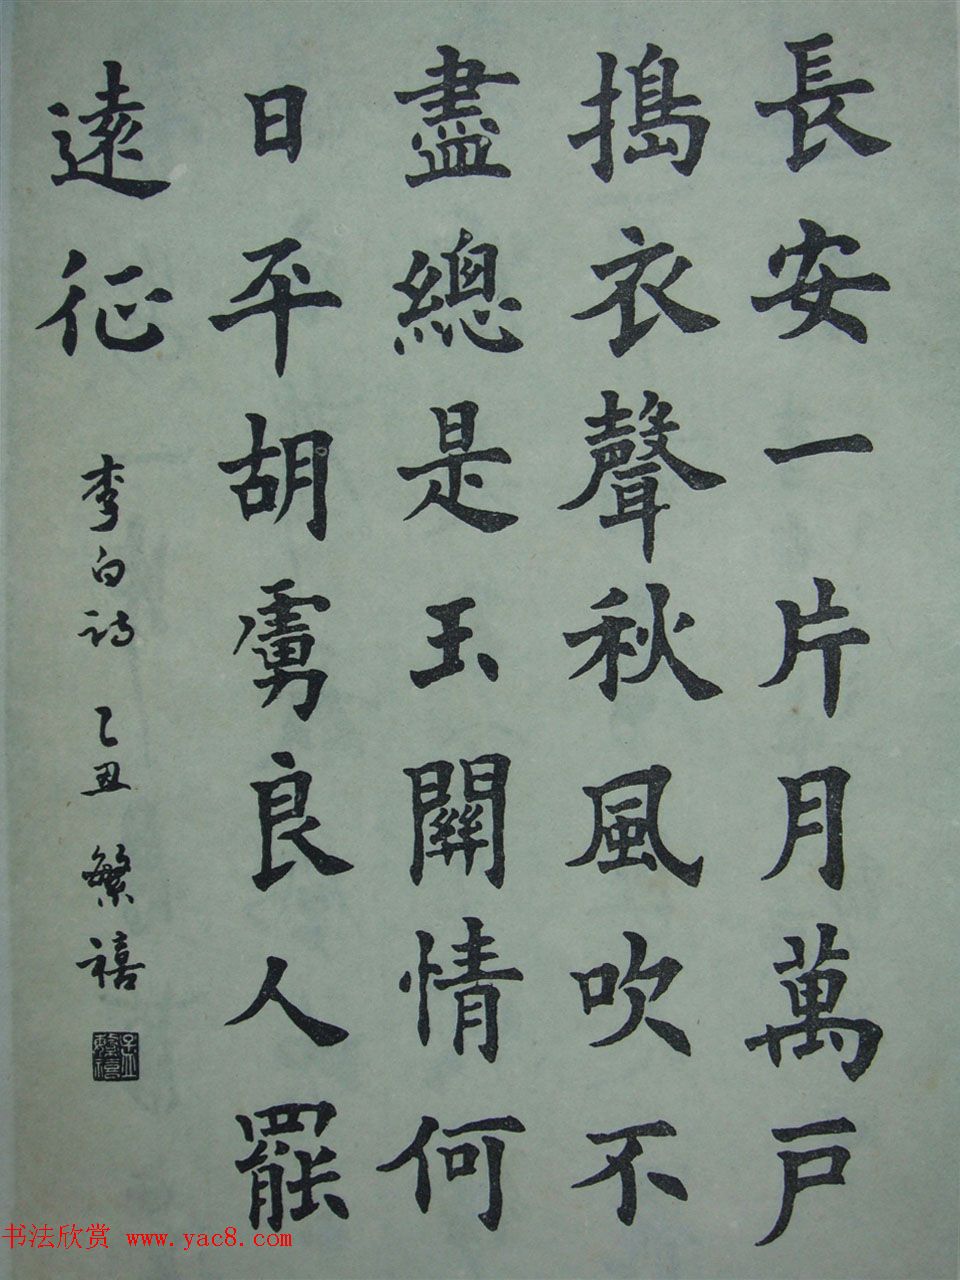 長安一片月萬戶
搗衣聲秋風吹不
盡總是玉關情何
日平胡虜良人罷
遠征
李白詩 乙丑 繁禧
书法欣赏 www.yac8.com